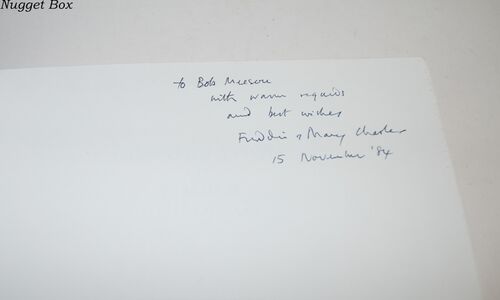 Nugget Box
to Bob Meeson
with warm regards
and best wishes
Freddie & Mary Chester
15 November '84